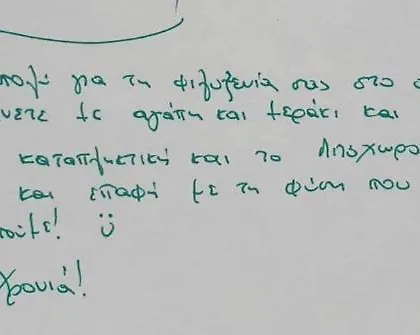 πολύ για τη φιλοξενία σας στο
νετε με αγάπη και μεράκι και
καταπληκτική και το Λιποχωρο
και επαφή με τη φύση που
ούμε! ü
χρονιά!